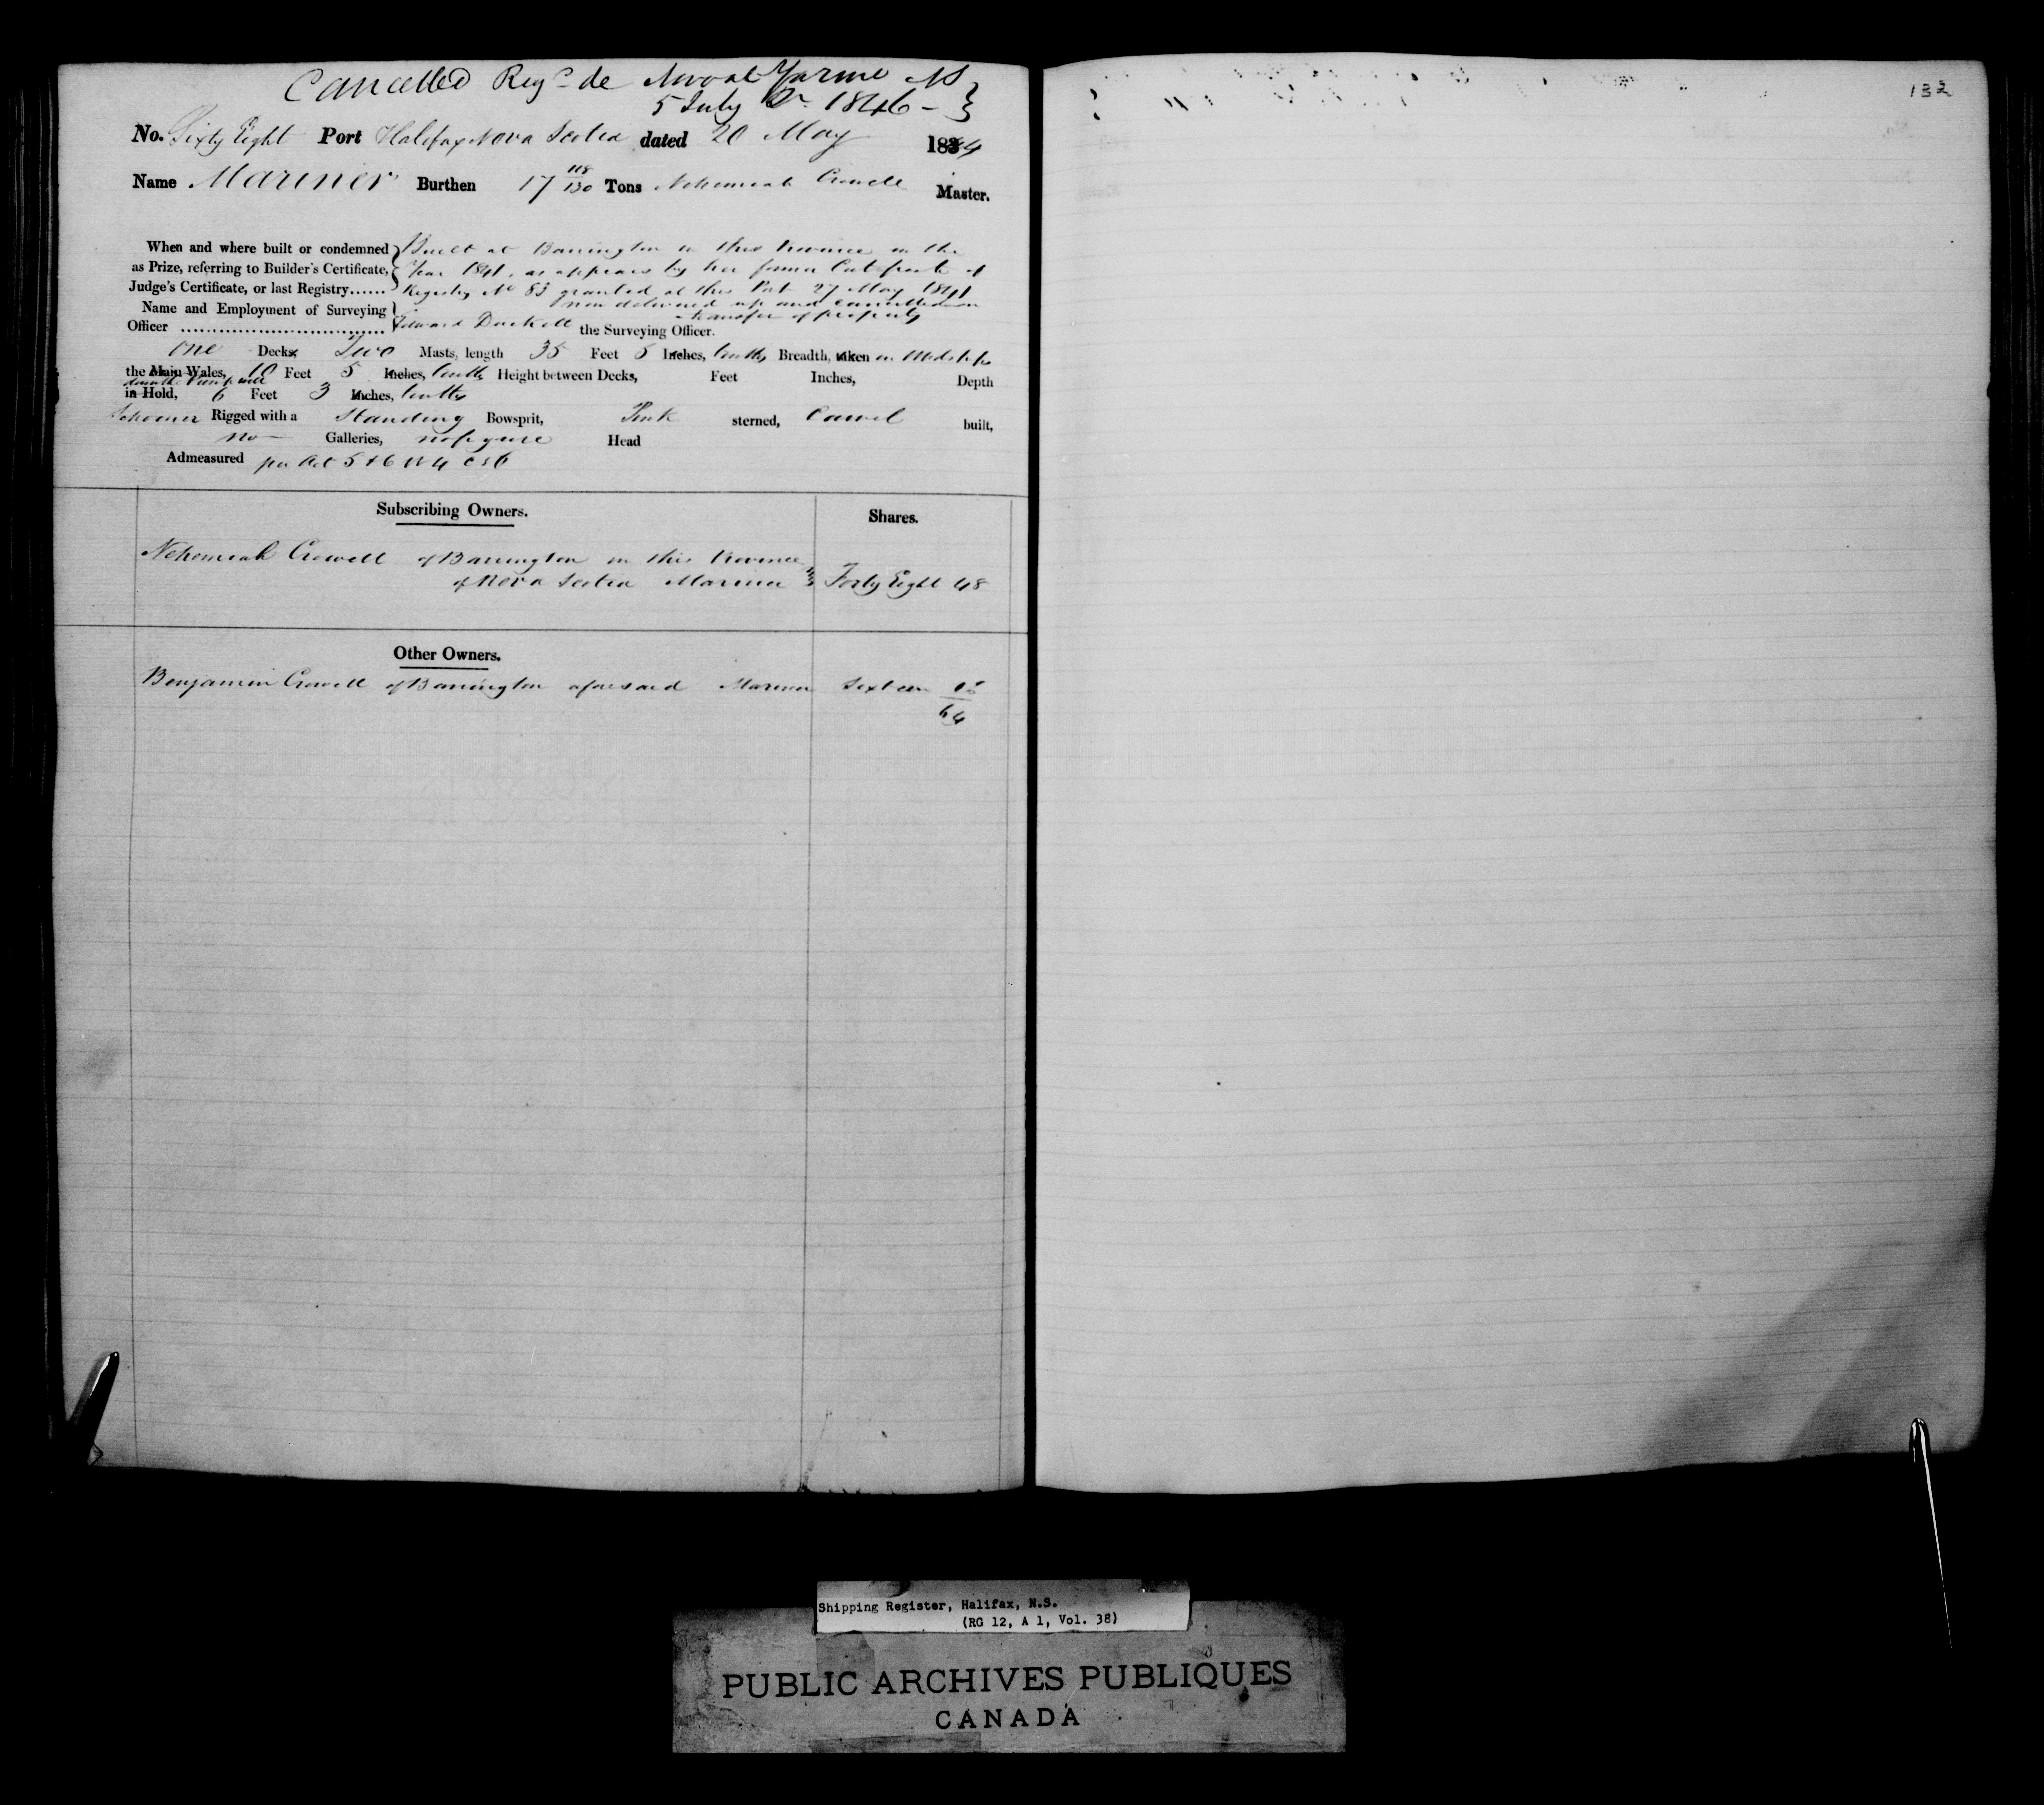 Cancelled Reg de Novo at Yarmo NS
5 July 1846 -
132
No. Sixty Eight Port Halifax Nova Scotia dated 20 May 1844
Name Mariner Burthen 17 118/130 Tons Nehemiah Crowell Master.
When and where built or condemned Built at Barrington in this Province in the
as Prize, referring to Builder's Certificate, Year 1841, as appears by her former Certificate of
Judge's Certificate, or last Registry...... Registry No 83 granted at this Port 27 May 1841
now delivered up and cancelled on
Name and Employment of Surveying transfer of property
Officer .............................. Edward the Surveying Officer.
One Decks Two Masts, length 35 Feet 5 Inches, tenths Breadth, taken in Midships
the Main Wales, 10 Feet 5 Inches, tenths Height between Decks, Feet Inches, Depth
in Hold, 6 Feet 3 Inches, tenths
Schooner Rigged with a Standing Bowsprit, Pink sterned, Carvel built,
no Galleries, no figure Head
Admeasured per Act 5 & 6 W 4 C 56
Subscribing Owners. Shares.
Nehemiah Crowell of Barrington in this Province
of Nova Scotia Mariner Forty Eight 48
Other Owners.
Benjamin Crowell of Barrington aforesaid Mariner Sixteen 16
64
Shipping Register, Halifax, N.S.
(RG 12, A 1, Vol. 38)
PUBLIC ARCHIVES PUBLIQUES
CANADA